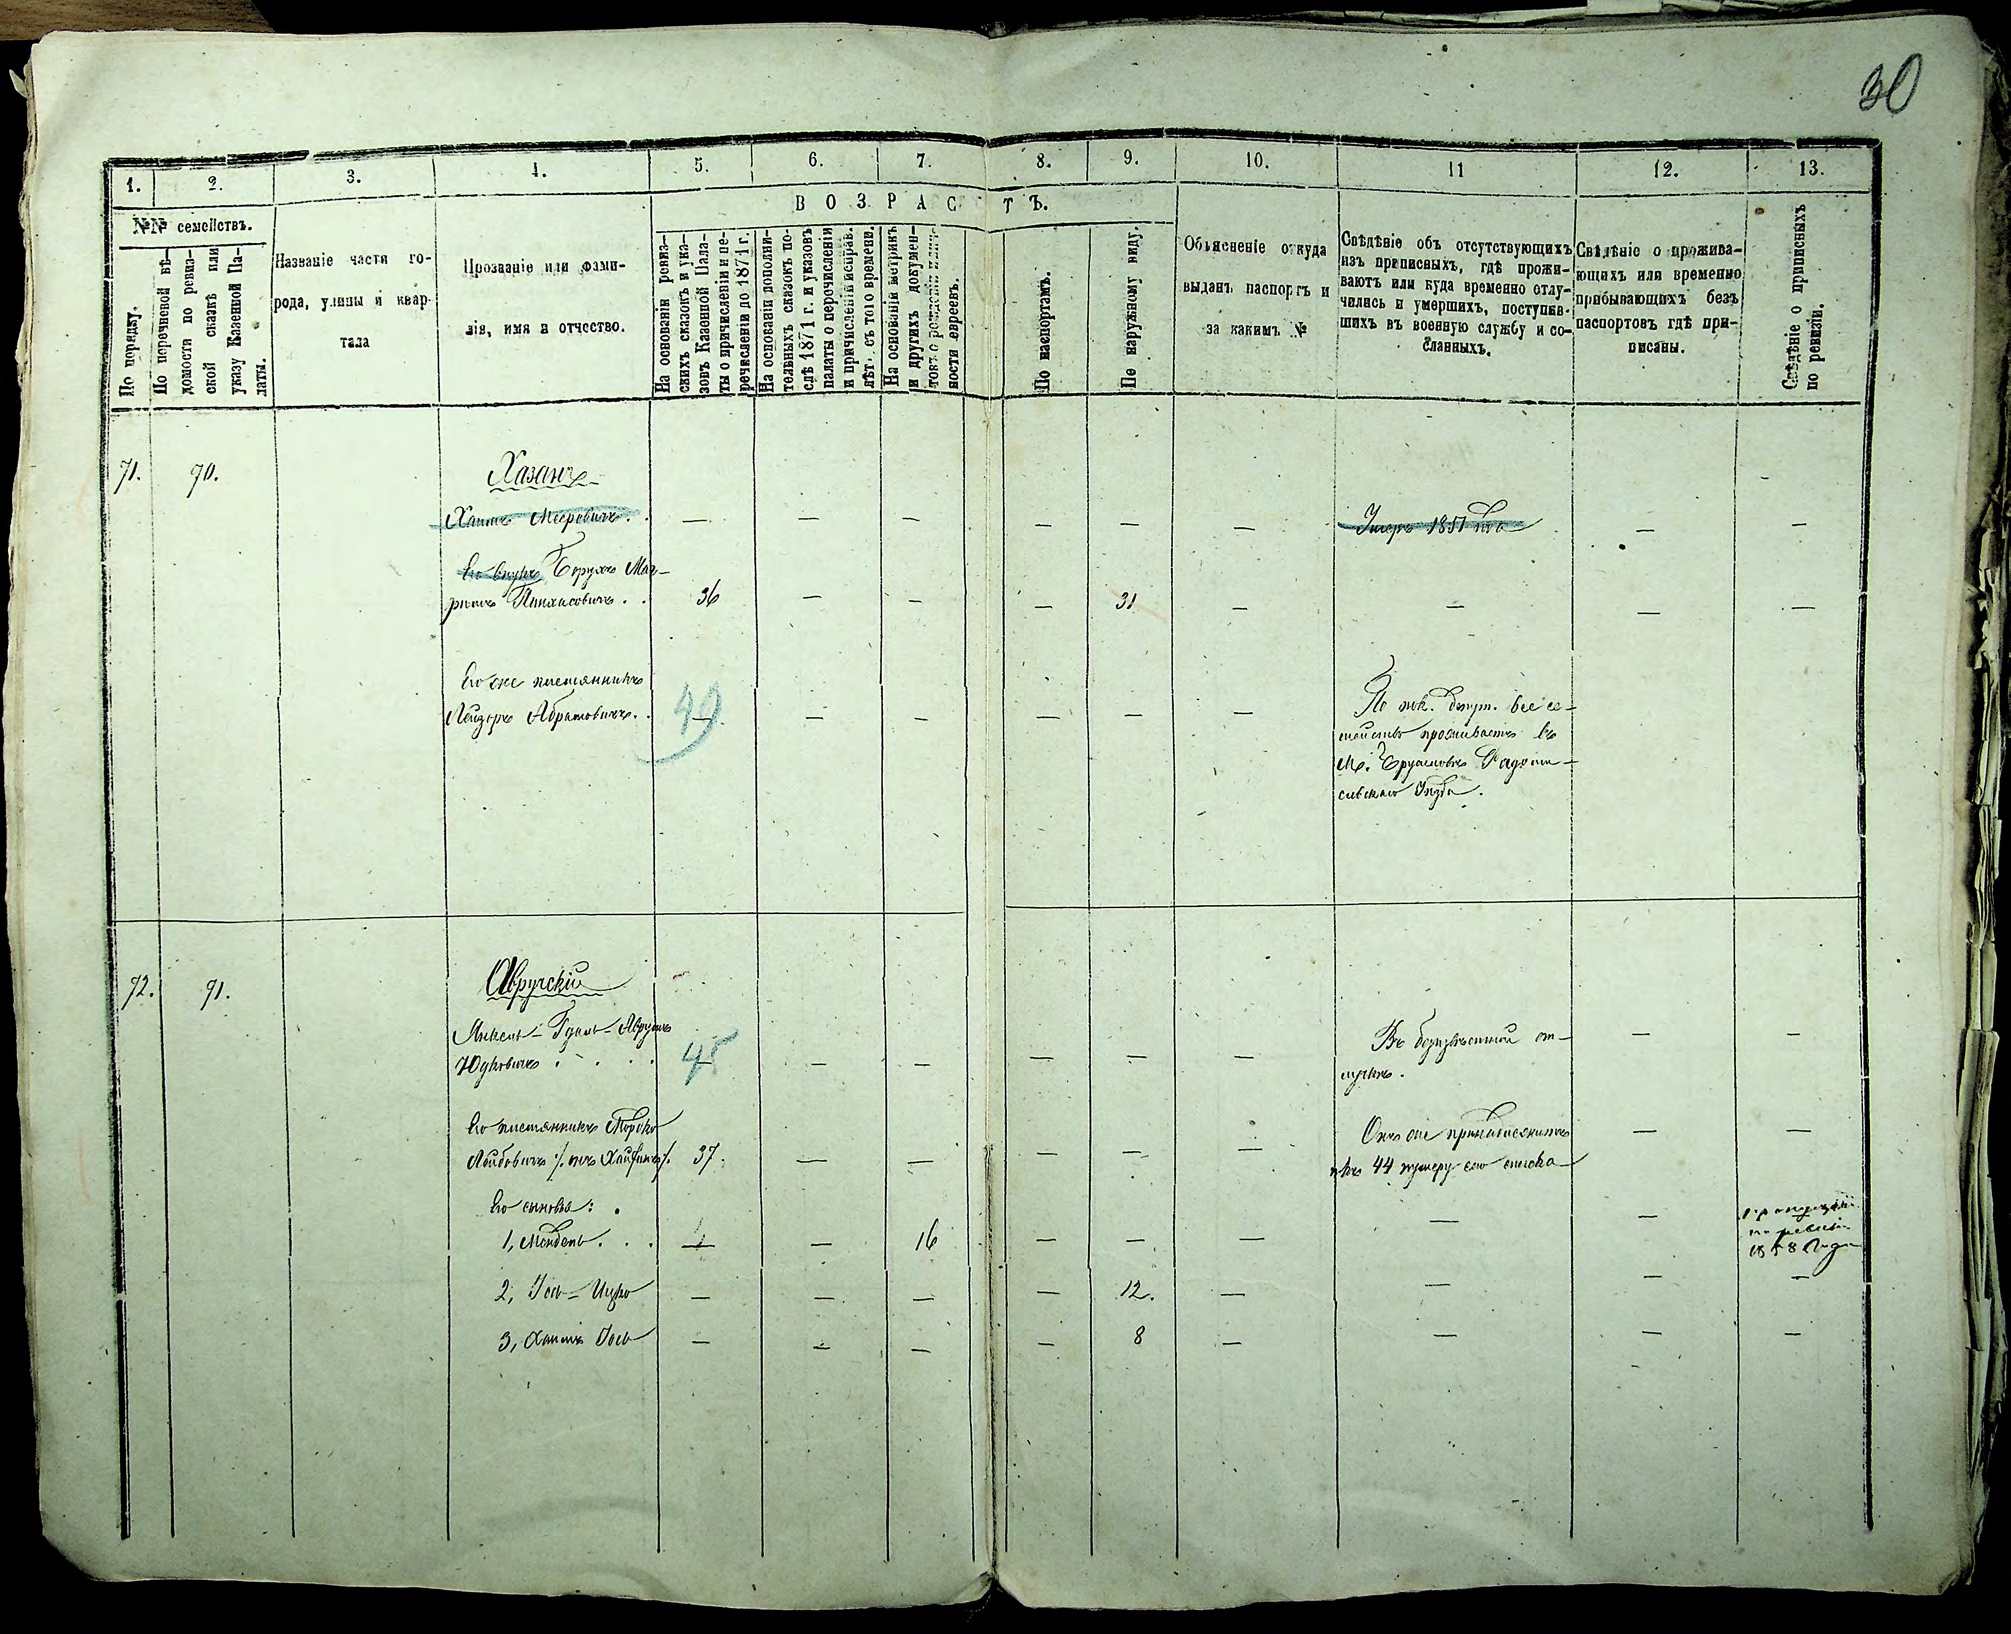 30
1. 2. 3. 4. 5. 6. 7. 8. 9. 10. 11 12. 13.
ВОЗРАСТЪ.
№№ семействъ.
По порядку.
По перечневой вѣ-
домости по ревиз-
ской сказкѣ или
указу Казенной Па-
латы.
Названіе части го-
рода, улицы и квар-
тала
Прозваніе или фами-
лія, имя и отчество.
На основаніи ревиз-
скихъ сказокъ и ука-
зовъ Казенной Пала-
ты о причисленіи и пе-
речисленіи до 1871 г.
На основаніи дополни-
тельныхъ сказокъ по-
слѣ 1871 г. и указовъ
палаты о перечисленіи
и причисленіи исправ.
лѣт. съ того времени.
На основаніи метрикъ
и другихъ докумен-
товъ о рожденіи
ности евреевъ.
По паспортамъ.
По наружному виду.
Объясненіе откуда
выданъ паспортъ и
за какимъ №
Свѣдѣніе объ отсутствующихъ
изъ приписныхъ, гдѣ прожи-
ваютъ или куда временно отлу-
чились и умершихъ, поступив-
шихъ въ военную службу и со-
сланныхъ.
Свѣдѣніе о прожива-
ющихъ или временно
прибывающихъ безъ
паспортовъ гдѣ при-
писаны.
Свѣдѣніе о приписныхъ
по ревизіи.
71. 70. Хазанъ
Хаимъ Мееровичъ . . — — — — — — Умеръ 1851 года — —
Его внукъ Борухъ Мор-
Пинхасовичъ . . 36 — — — 31 — — — —
Его же племянникъ
Лейзоръ Абрамовичъ . . 49 — — — — — — По пок. депут. все се-
мейство проживаетъ въ
М. Радомы-
сльскаго Уѣзда.
72. 91. Овручскій
Янкель-Гдаль-Аврумъ
Юдковичъ . . . . 45 — — — — — Въ безизвѣстной от-
лучкѣ. — —
Его племянникъ
Лейбовичъ 37. — — — — — Онъ же
44 нумеру сего списка — —
Его сыновья:
1, Мендель . . . — — 16 — — — — — по ревизіи
1858 года
2, Іось-Ицко — — — — 12. — — — —
3, Хаимъ Іось — — — — 8 — — — —